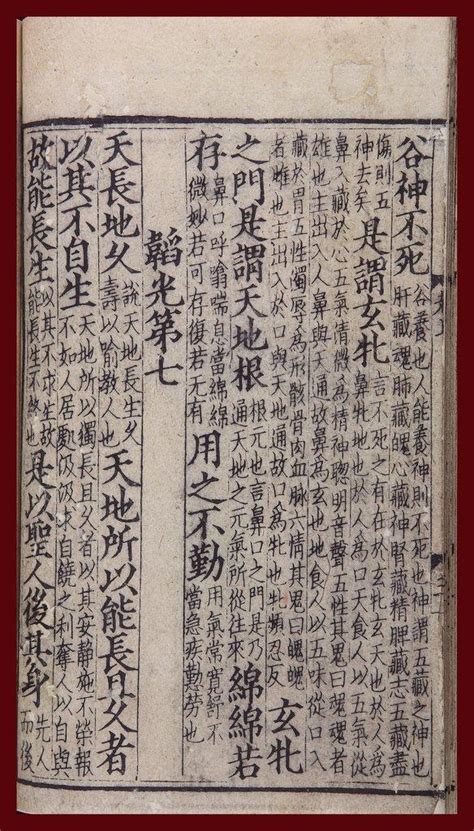 谷神不死谷養也人能養神則不死也神謂五藏之神也肝藏魂肺藏魄心藏神腎藏精脾藏志五藏盡
傷則五神去矣是謂玄牝言不死之有在於玄牝玄天也於人為鼻牝地也於人為口天食人以五氣從
鼻入藏於心五氣清微為精神聰明音聲五性其鬼曰魂魂者雄也主出入人鼻與天通故鼻為玄也地食人以五味從口入
藏於胃五性濁辱為形骸骨肉血脈六情其鬼曰魄魄者雌也主出入於口與天地通故口為牝也牝頻忍反玄牝
之門是謂天地根根元也言鼻口之門是乃通天地之元氣所從往來綿綿若
存鼻口呼噏喘息當綿綿微妙若可存復若無有用之不勤用氣常寬舒不當急疾懃勞也
韜光第七
天長地久說天地長生久壽以喻教人也天地所以能長且久者
以其不自生天地所以獨長且久者以其安靜施不榮報不如人居處汲汲求自饒之利奪人以自與
故能長生以其不求生故能長生不終也是以聖人後其身先人而後